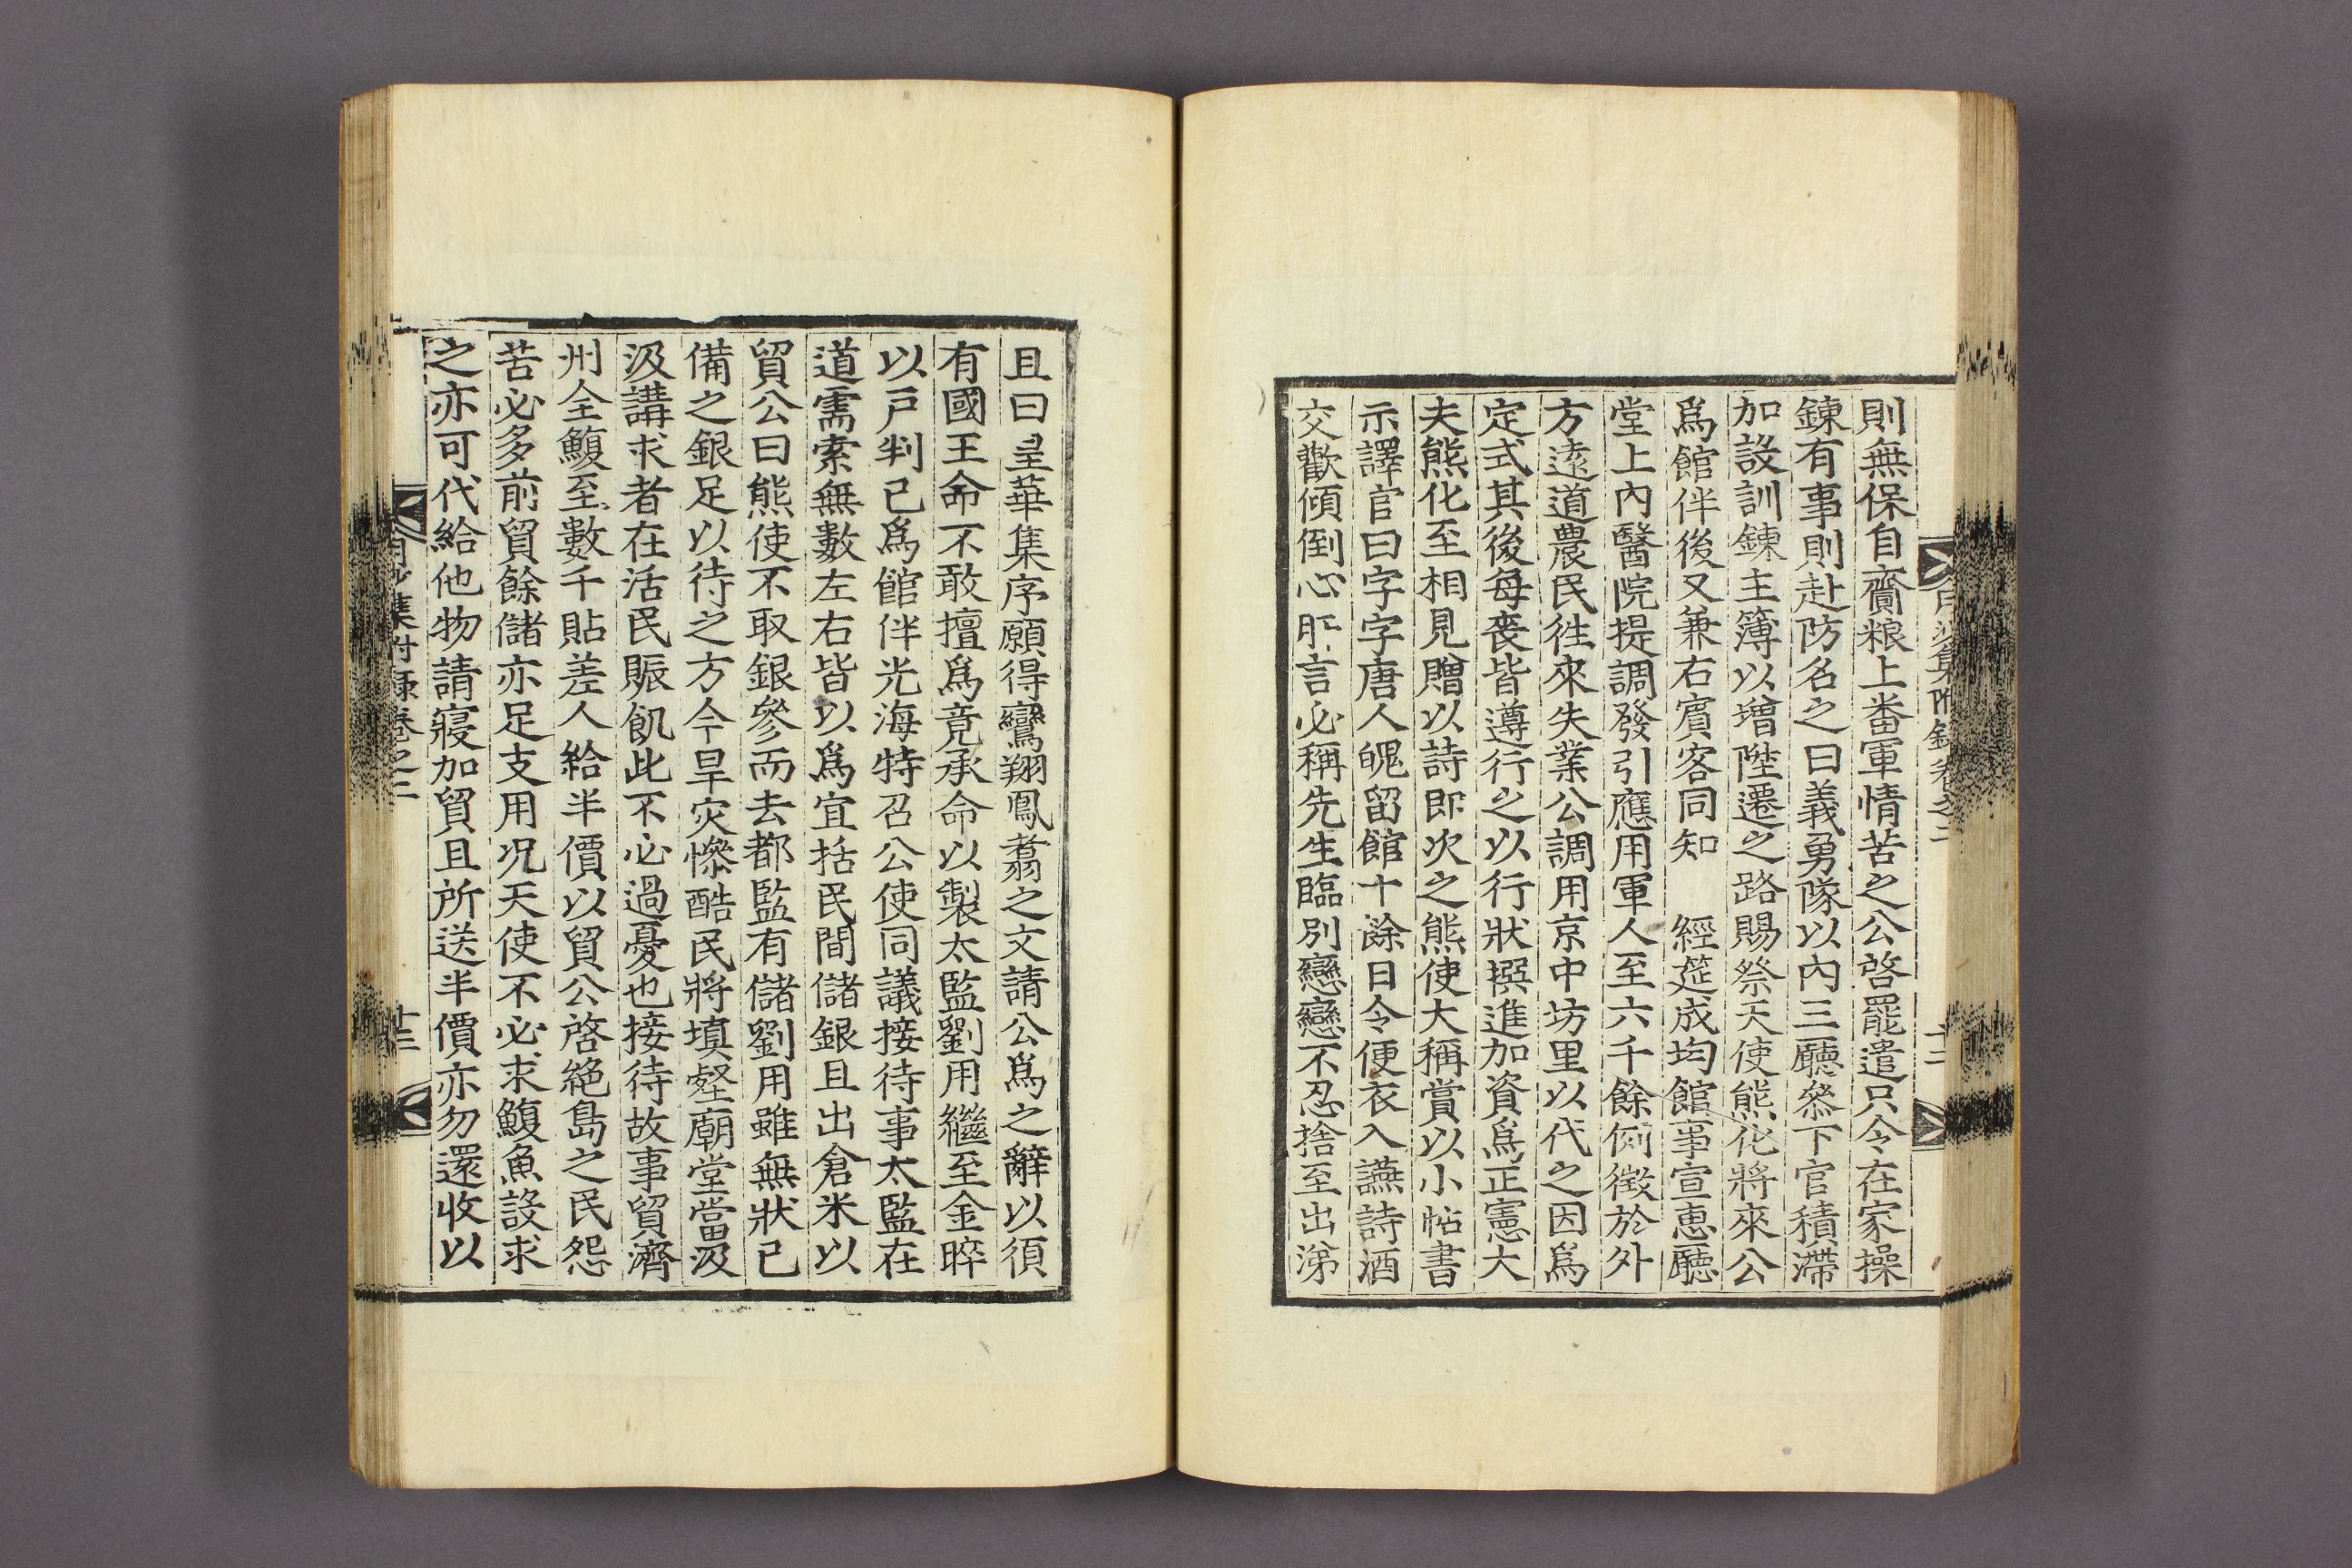 則無保自齎粮上番軍情苦之公啓罷遣只令在家操
鍊有事則赴防名之曰義勇隊以內三廳叅下官積滯
加設訓鍊主簿以增陞遷之路賜祭天使熊化將來公
爲館伴後又兼右賓客同知 經筵成均館事宣惠廳
堂上內醫院提調發引應用軍人至六千餘例徵於外
方遠道農民徃來失業公調用京中坊里以代之因爲
定式其後每喪皆遵行之以行狀撰進加資爲正憲大
夫熊化至相見贈以詩卽次之熊使大稱賞以小帖書
示譯官曰字字唐人皃留館十餘日令便衣入讌詩酒
交歡傾倒心肝言必稱先生臨別戀戀不忍捨至出涕
集附錄卷之二
十二
且曰皇華集序願得鸞翔鳳翥之文請公爲之辭以須
有國王命不敢擅爲竟承命以製太監劉用繼至金晬
以戶判已爲館伴光海特召公使同議接待事太監在
道需索無數左右皆以爲宜括民間儲銀且出倉米以
貿公曰熊使不取銀參而去都監有儲劉用雖無狀已
備之銀足以待之方今旱灾慘酷民將塡壑廟堂當汲
汲講求者在活民賑飢此不必過憂也接待故事貿濟
州全鰒至數千貼差人給半價以貿公啓絶島之民怨
苦必多前貿餘儲亦足支用况天使不必求鰒魚設求
之亦可代給他物請寢加貿且所送半價亦勿還收以
集附錄卷之二
十三